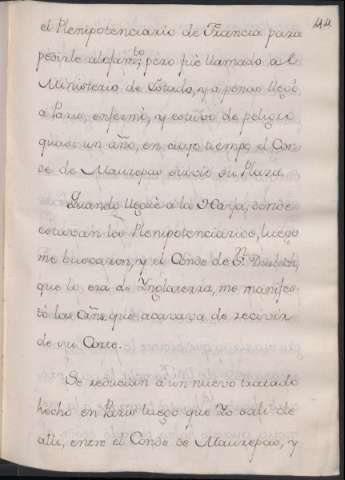 44
el Plenipotenciario de Francia para
pedirle alojam.to; pero fué llamado al
Ministerio de Estado, y apenas llegó
a Paris, enfermó, y estuvo de peligro
quasi un año, en cuyo tiempo el Con-
de de Maurepas exerció su Plaza.
Quando llegué a la Haya, donde
estavan los Plenipotenciarios, luego
me buscaron, y el Conde de
que lo era de Inglaterra, me manifes-
tó las Ôrñs que acavava de recivir
de su Corte.
Se reducían a un nuevo tratado
hecho en Paris luego que Yo salí de
alli, entre el Conde de Maurepas, y